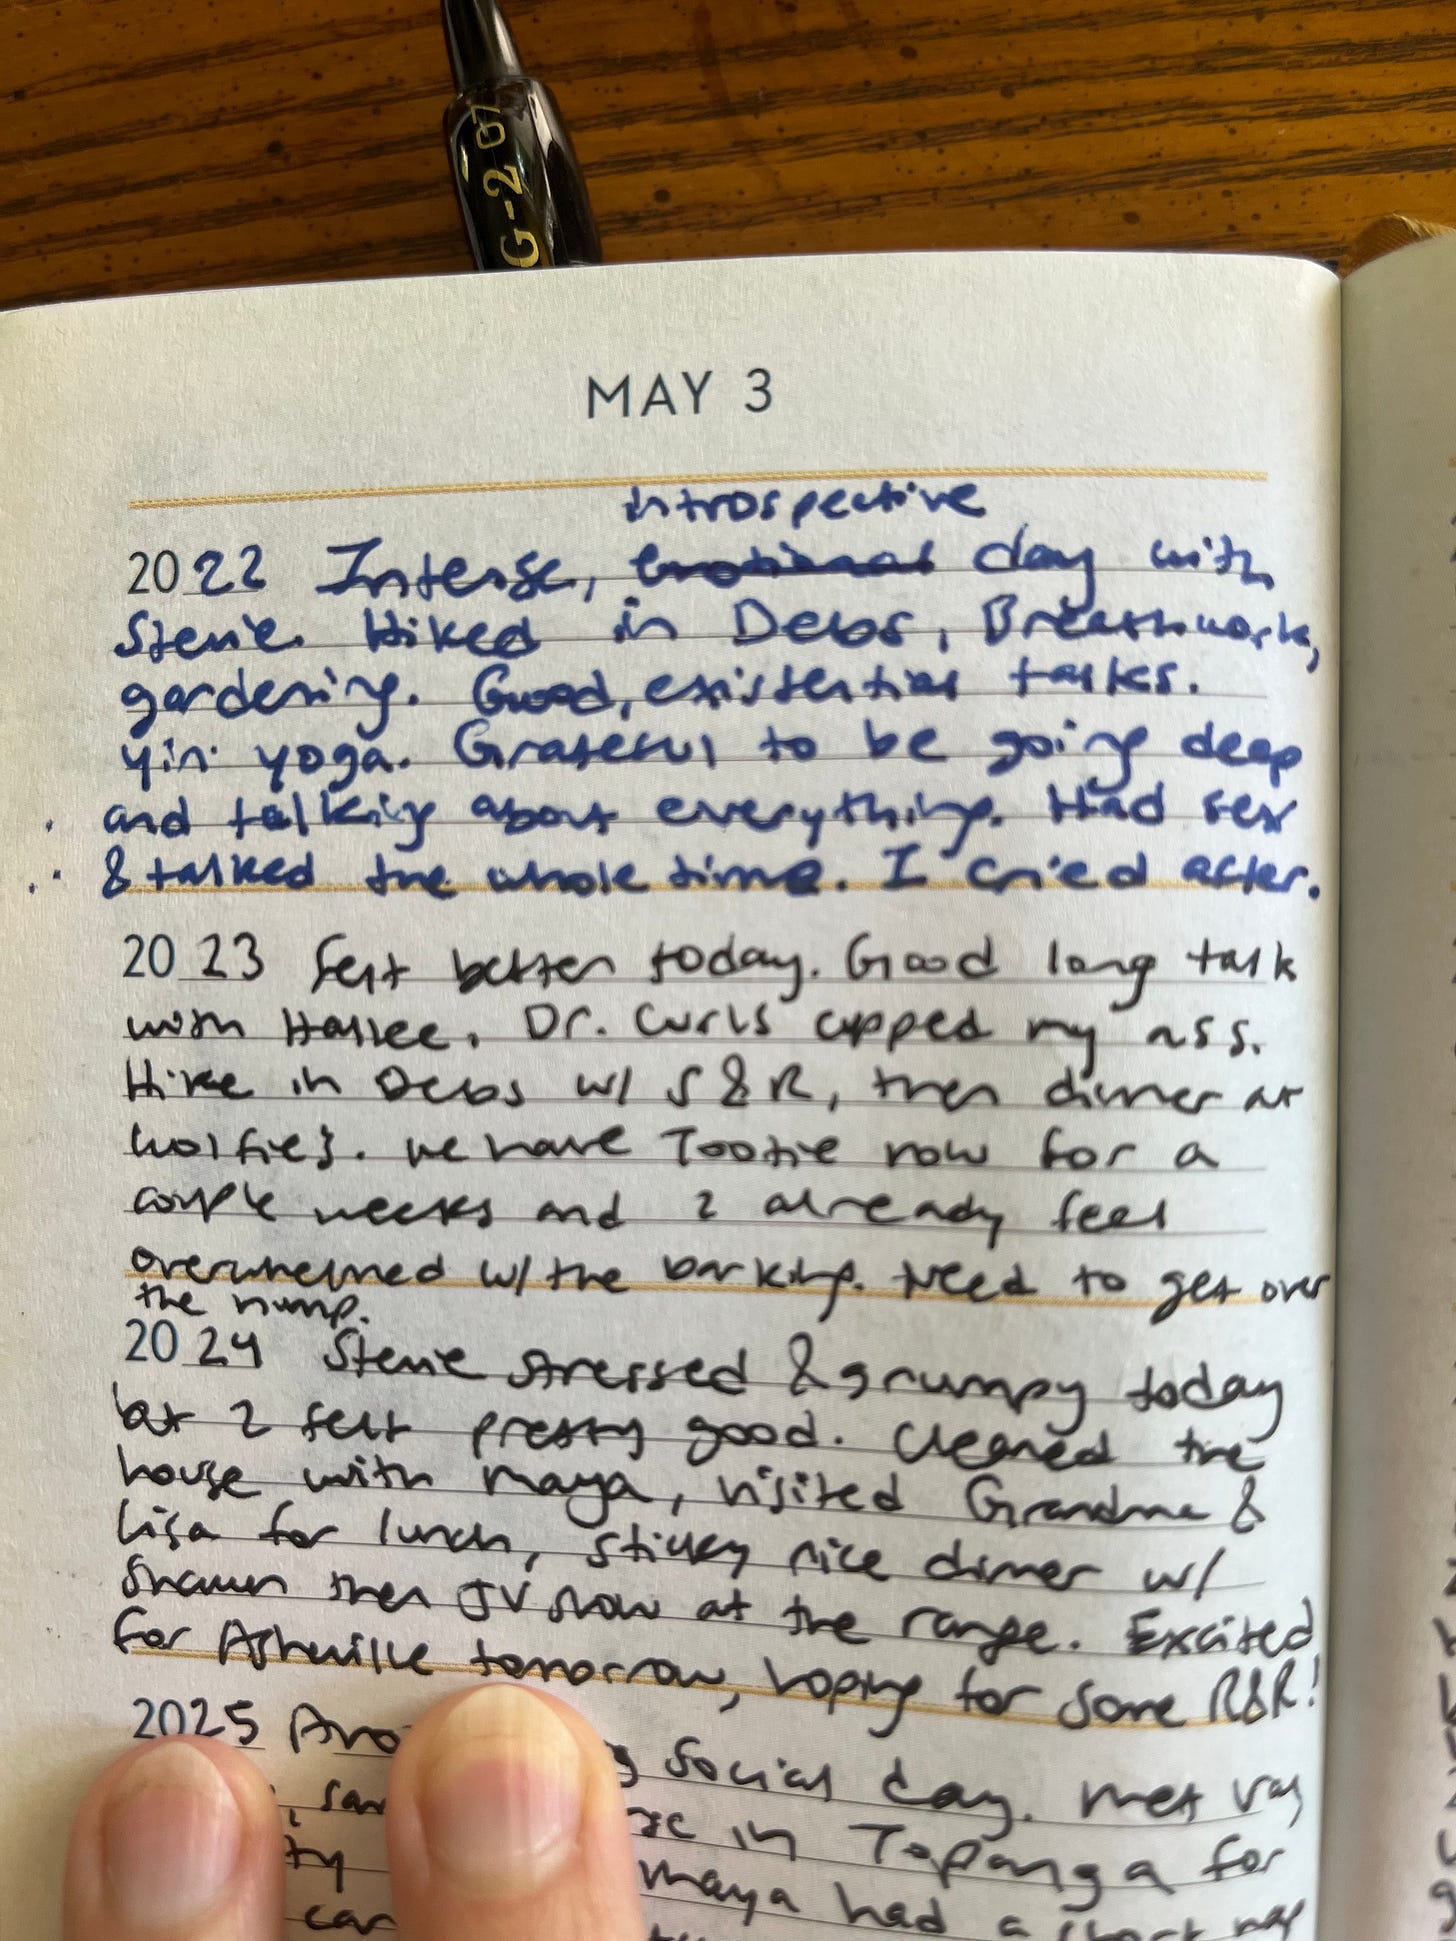 G-2 07
MAY 3
introspective
2022 Intense, emotional day with
Stevie. Hiked in Debs, Breathwork,
gardening. Good, existential talks.
yin yoga. Grateful to be going deep
and talking about everything. Had sex
& talked the whole time. I cried after.
2023 Felt better today. Good long talk
with Hallee. Dr. Curls cupped my ass.
Hike in Debs w/ S & R, then dinner at
Wolfie's. We have Tootie now for a
couple weeks and I already feel
overwhelmed w/ the barking. Need to get over
the hump.
2024 Stevie stressed & grumpy today
but I felt pretty good. Cleaned the
house with Maya, visited Grandma &
Lisa for lunch, sticky rice dinner w/
Shawn then JV show at the range. Excited
for Asheville tomorrow, hoping for some R&R!
2025 social day. Met
in Topanga for
Maya had a short nap